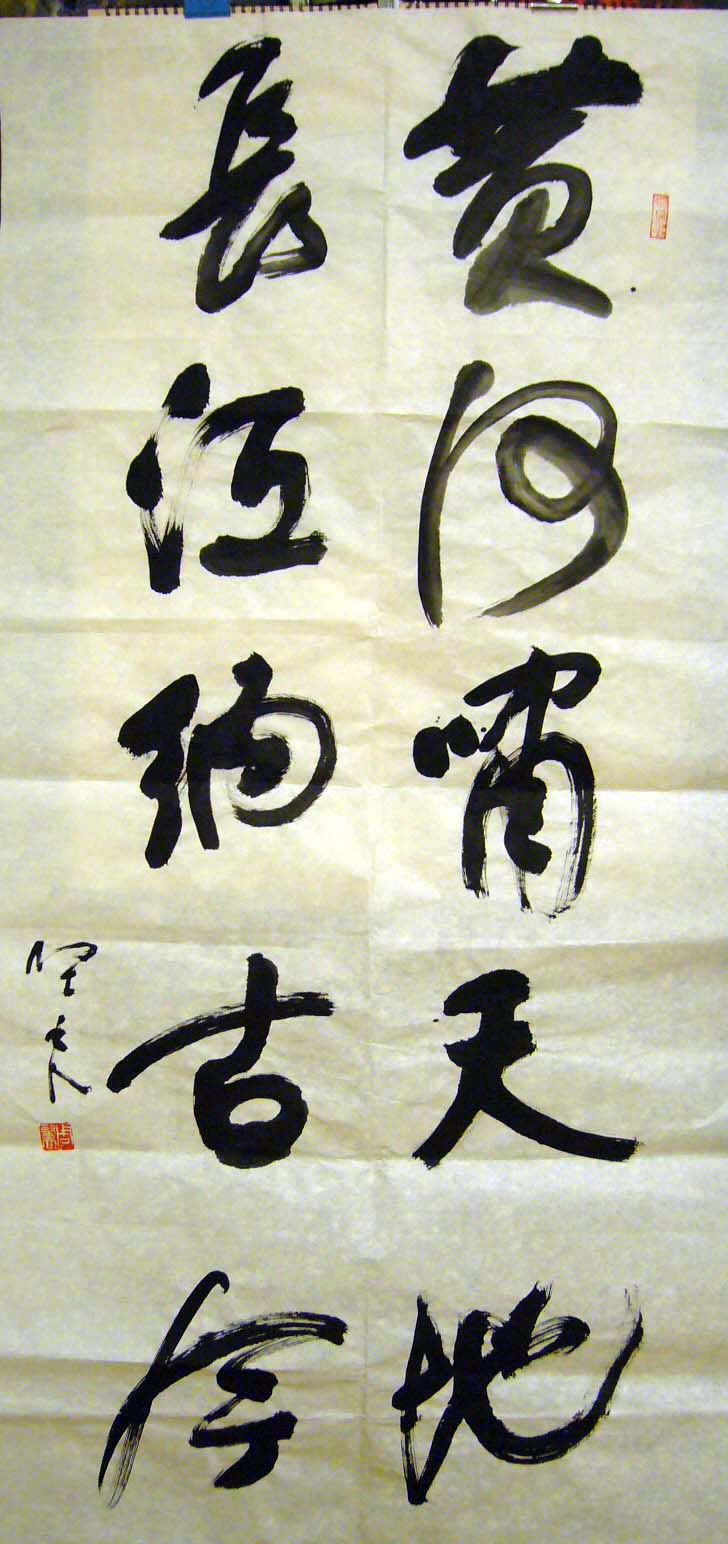 黄河啸天地
長江納古今